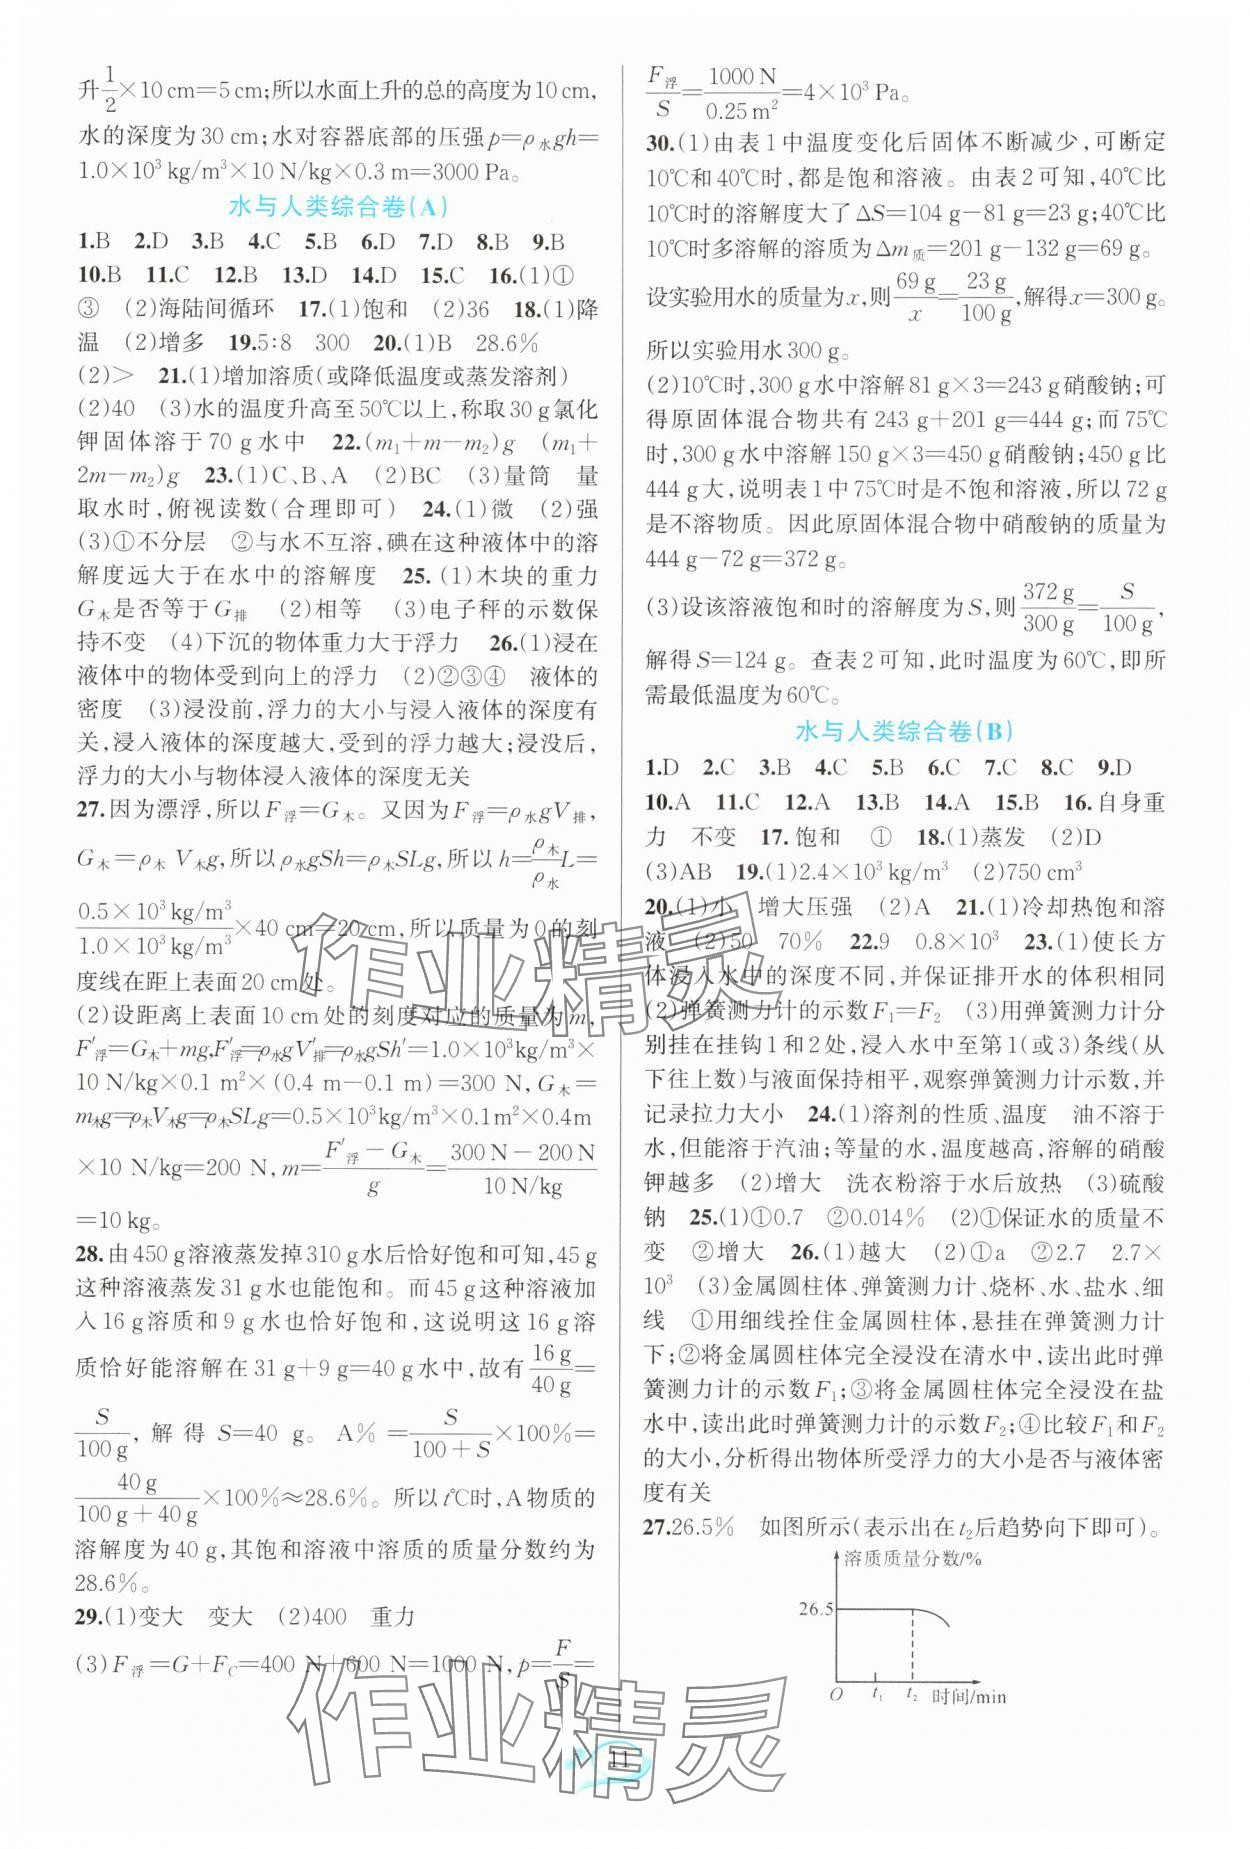 升1/2×10 cm=5 cm;所以水面上升的总的高度为10 cm,
水的深度为30 cm;水对容器底部的压强p=ρ水gh=
1.0×10³ kg/m³×10 N/kg×0.3 m=3000 Pa。
水与人类综合卷(A)
1.B 2.D 3.B 4.C 5.B 6.D 7.D 8.B 9.B
10.B 11.C 12.B 13.D 14.D 15.C 16.(1)①
③ (2)海陆间循环 17.(1)饱和 (2)36 18.(1)降
温 (2)增多 19.5∶8 300 20.(1)B 28.6%
(2)> 21.(1)增加溶质(或降低温度或蒸发溶剂)
(2)40 (3)水的温度升高至50℃以上,称取30 g氯化
钾固体溶于70 g水中 22.(m₁+m-m₂)g (m₁+
2m-m₂)g 23.(1)C、B、A (2)BC (3)量筒 量
取水时,俯视读数(合理即可) 24.(1)微 (2)强
(3)①不分层 ②与水不互溶,碘在这种液体中的溶
解度远大于在水中的溶解度 25.(1)木块的重力
G木是否等于G排 (2)相等 (3)电子秤的示数保
持不变 (4)下沉的物体重力大于浮力 26.(1)浸在
液体中的物体受到向上的浮力 (2)②③④ 液体的
密度 (3)浸没前,浮力的大小与浸入液体的深度有
关,浸入液体的深度越大,受到的浮力越大;浸没后,
浮力的大小与物体浸入液体的深度无关
27.因为漂浮,所以F浮=G木。又因为F浮=ρ水gV排,
G木=ρ木V木g,所以ρ水gSh=ρ木SLg,所以h=ρ木/ρ水L=
0.5×10³ kg/m³/1.0×10³ kg/m³×40 cm=20 cm,所以质量为0的刻
度线在距上表面20 cm处。
(2)设距离上表面10 cm处的刻度对应的质量为m,
F′浮=G木+mg,F′浮=ρ水gV′排=ρ水gSh′=1.0×10³kg/m³×
10 N/kg×0.1 m²×(0.4 m-0.1 m)=300 N,G木=
m木g=ρ木V木g=ρ木SLg=0.5×10³kg/m³×0.1m²×0.4m
×10 N/kg=200 N,m=F′浮-G木/g=300 N-200 N/10 N/kg
=10 kg。
28.由450 g溶液蒸发掉310 g水后恰好饱和可知,45 g
这种溶液蒸发31 g水也能饱和。而45 g这种溶液加
入16 g溶质和9 g水也恰好饱和,这说明这16 g溶
质恰好能溶解在31 g+9 g=40 g水中,故有16 g/40 g=
S/100 g,解得S=40 g。A%=S/100+S×100%=
40 g/100 g+40 g×100%≈28.6%。所以t℃时,A物质的
溶解度为40 g,其饱和溶液中溶质的质量分数约为
28.6%。
29.(1)变大 变大 (2)400 重力
(3)F浮=G+FC=400 N+600 N=1000 N,p=F/S=
F浮/S=1000 N/0.25 m²=4×10³ Pa。
30.(1)由表1中温度变化后固体不断减少,可断定
10℃和40℃时,都是饱和溶液。由表2可知,40℃比
10℃时的溶解度大了ΔS=104 g-81 g=23 g;40℃比
10℃时多溶解的溶质为Δm质=201 g-132 g=69 g。
设实验用水的质量为x,则69 g/x=23 g/100 g,解得x=300 g。
所以实验用水300 g。
(2)10℃时,300 g水中溶解81 g×3=243 g硝酸钠;可
得原固体混合物共有243 g+201 g=444 g;而75℃
时,300 g水中溶解150 g×3=450 g硝酸钠;450 g比
444 g大,说明表1中75℃时是不饱和溶液,所以72 g
是不溶物质。因此原固体混合物中硝酸钠的质量为
444 g-72 g=372 g。
(3)设该溶液饱和时的溶解度为S,则372 g/300 g=S/100 g,
解得S=124 g。查表2可知,此时温度为60℃,即所
需最低温度为60℃。
水与人类综合卷(B)
1.D 2.C 3.B 4.C 5.B 6.C 7.C 8.C 9.D
10.A 11.C 12.A 13.B 14.A 15.B 16.自身重
力 不变 17.饱和 ① 18.(1)蒸发 (2)D
(3)AB 19.(1)2.4×10³ kg/m³ (2)750 cm³
20.(1)小 增大压强 (2)A 21.(1)冷却热饱和溶
液 (2)50 70% 22.9 0.8×10³ 23.(1)使长方
体浸入水中的深度不同,并保证排开水的体积相同
(2)弹簧测力计的示数F₁=F₂ (3)用弹簧测力计分
别挂在挂钩1和2处,浸入水中至第1(或3)条线(从
下往上数)与液面保持相平,观察弹簧测力计示数,并
记录拉力大小 24.(1)溶剂的性质、温度 油不溶于
水,但能溶于汽油;等量的水,温度越高,溶解的硝酸
钾越多 (2)增大 洗衣粉溶于水后放热 (3)硫酸
钠 25.(1)①0.7 ②0.014% (2)①保证水的质量不
变 ②增大 26.(1)越大 (2)①a ②2.7 2.7×
10³ (3)金属圆柱体、弹簧测力计、烧杯、水、盐水、细
线 ①用细线拴住金属圆柱体,悬挂在弹簧测力计
下;②将金属圆柱体完全浸没在清水中,读出此时弹
簧测力计的示数F₁;③将金属圆柱体完全浸没在盐
水中,读出此时弹簧测力计的示数F₂;④比较F₁和F₂
的大小,分析得出物体所受浮力的大小是否与液体密
度有关
27.26.5% 如图所示(表示出在t₂后趋势向下即可)。
溶质质量分数/%
26.5
O t₁ t₂ 时间/min
作业精灵
作业精灵
11